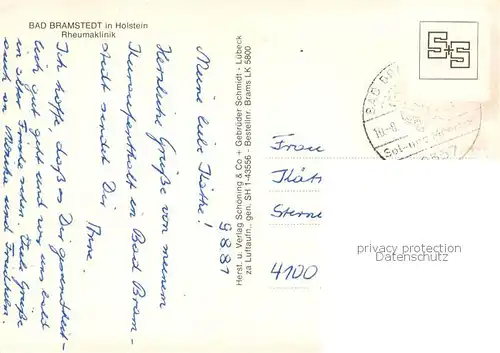 BAD BRAMSTEDT in Holstein
Rheumaklinik
9.8.81
Meine liebe Käthe!
Herzliche Grüße von meinem
Kuraufenthalt in Bad Bram-
stedt sendet Dir
Anne.
Ich hoffe, daß es Dir gesundheit-
lich gut geht und wir uns bald
in alter Freude sehen. Viele Grüße
auch an Monika und
Herst. u. Verlag Schöning & Co + Gebrüder Schmidt - Lübeck
za Luftaufn., gen. SH 1-43556 - Bestellnr. Brams LK 5800
S+S
BAD
Frau
Käth
Sterne
4100
privacy protection
Datenschutz